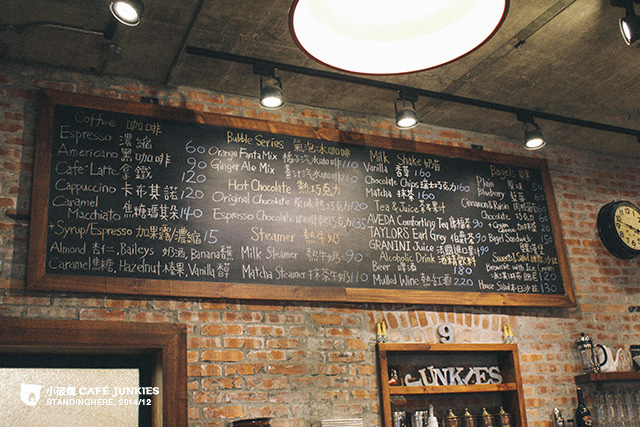 Coffee 咖啡
Espresso 濃縮 60
Americano 黑咖啡 90
Cafe Latte 拿鐵 120
Cappuccino 卡布其諾 120
Caramel
Macchiato 焦糖瑪其朵 140
+Syrup/Espresso 加果露/濃縮 15
Almond 杏仁, Baileys 奶酒, Banana 香蕉
Caramel 焦糖, Hazelnut 榛果, Vanilla 香草
Bubble Series 氣泡冰咖啡
Orange Fanta Mix 橘子汽水咖啡 110
Ginger Ale Mix 薑汁汽水咖啡 110
Hot Chocolate 熱巧克力
Original Chocolate 原味熱巧克力 120
Espresso Chocolate 咖啡熱巧克力 135
Steamer 熱牛奶
Milk Steamer 熱牛奶 90
Matcha Steamer 抹茶牛奶 110
Milk Shake 奶昔
Vanilla 香草 160
Chocolate Chips 160
Matcha 抹茶 160
Tea & Juice 茶&果汁
AVEDA Comforting Tea 90
TAYLORS Earl Grey 伯爵茶 90
GRANINI Juice
Alcoholic Drink 酒精飲料
Beer 啤酒 180
Mulled Wine 熱紅酒 220
Bagels
Plain 原味 50
Blueberry
Cinnamon & Raisin
Chocolate 巧克力
+Cream Cheese
Bagel Sandwich 150
Sweets & Salad
Brownie with Ice Cream
House Salad 130
9
JUNKIES
小破爛 CAFÉ JUNKIES
STANDINGHERE, 2014/12